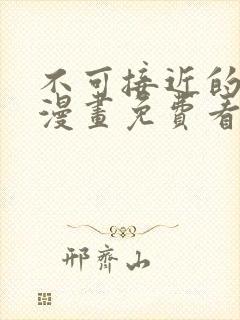 不可接近的
漫畫免費看
邢齊山